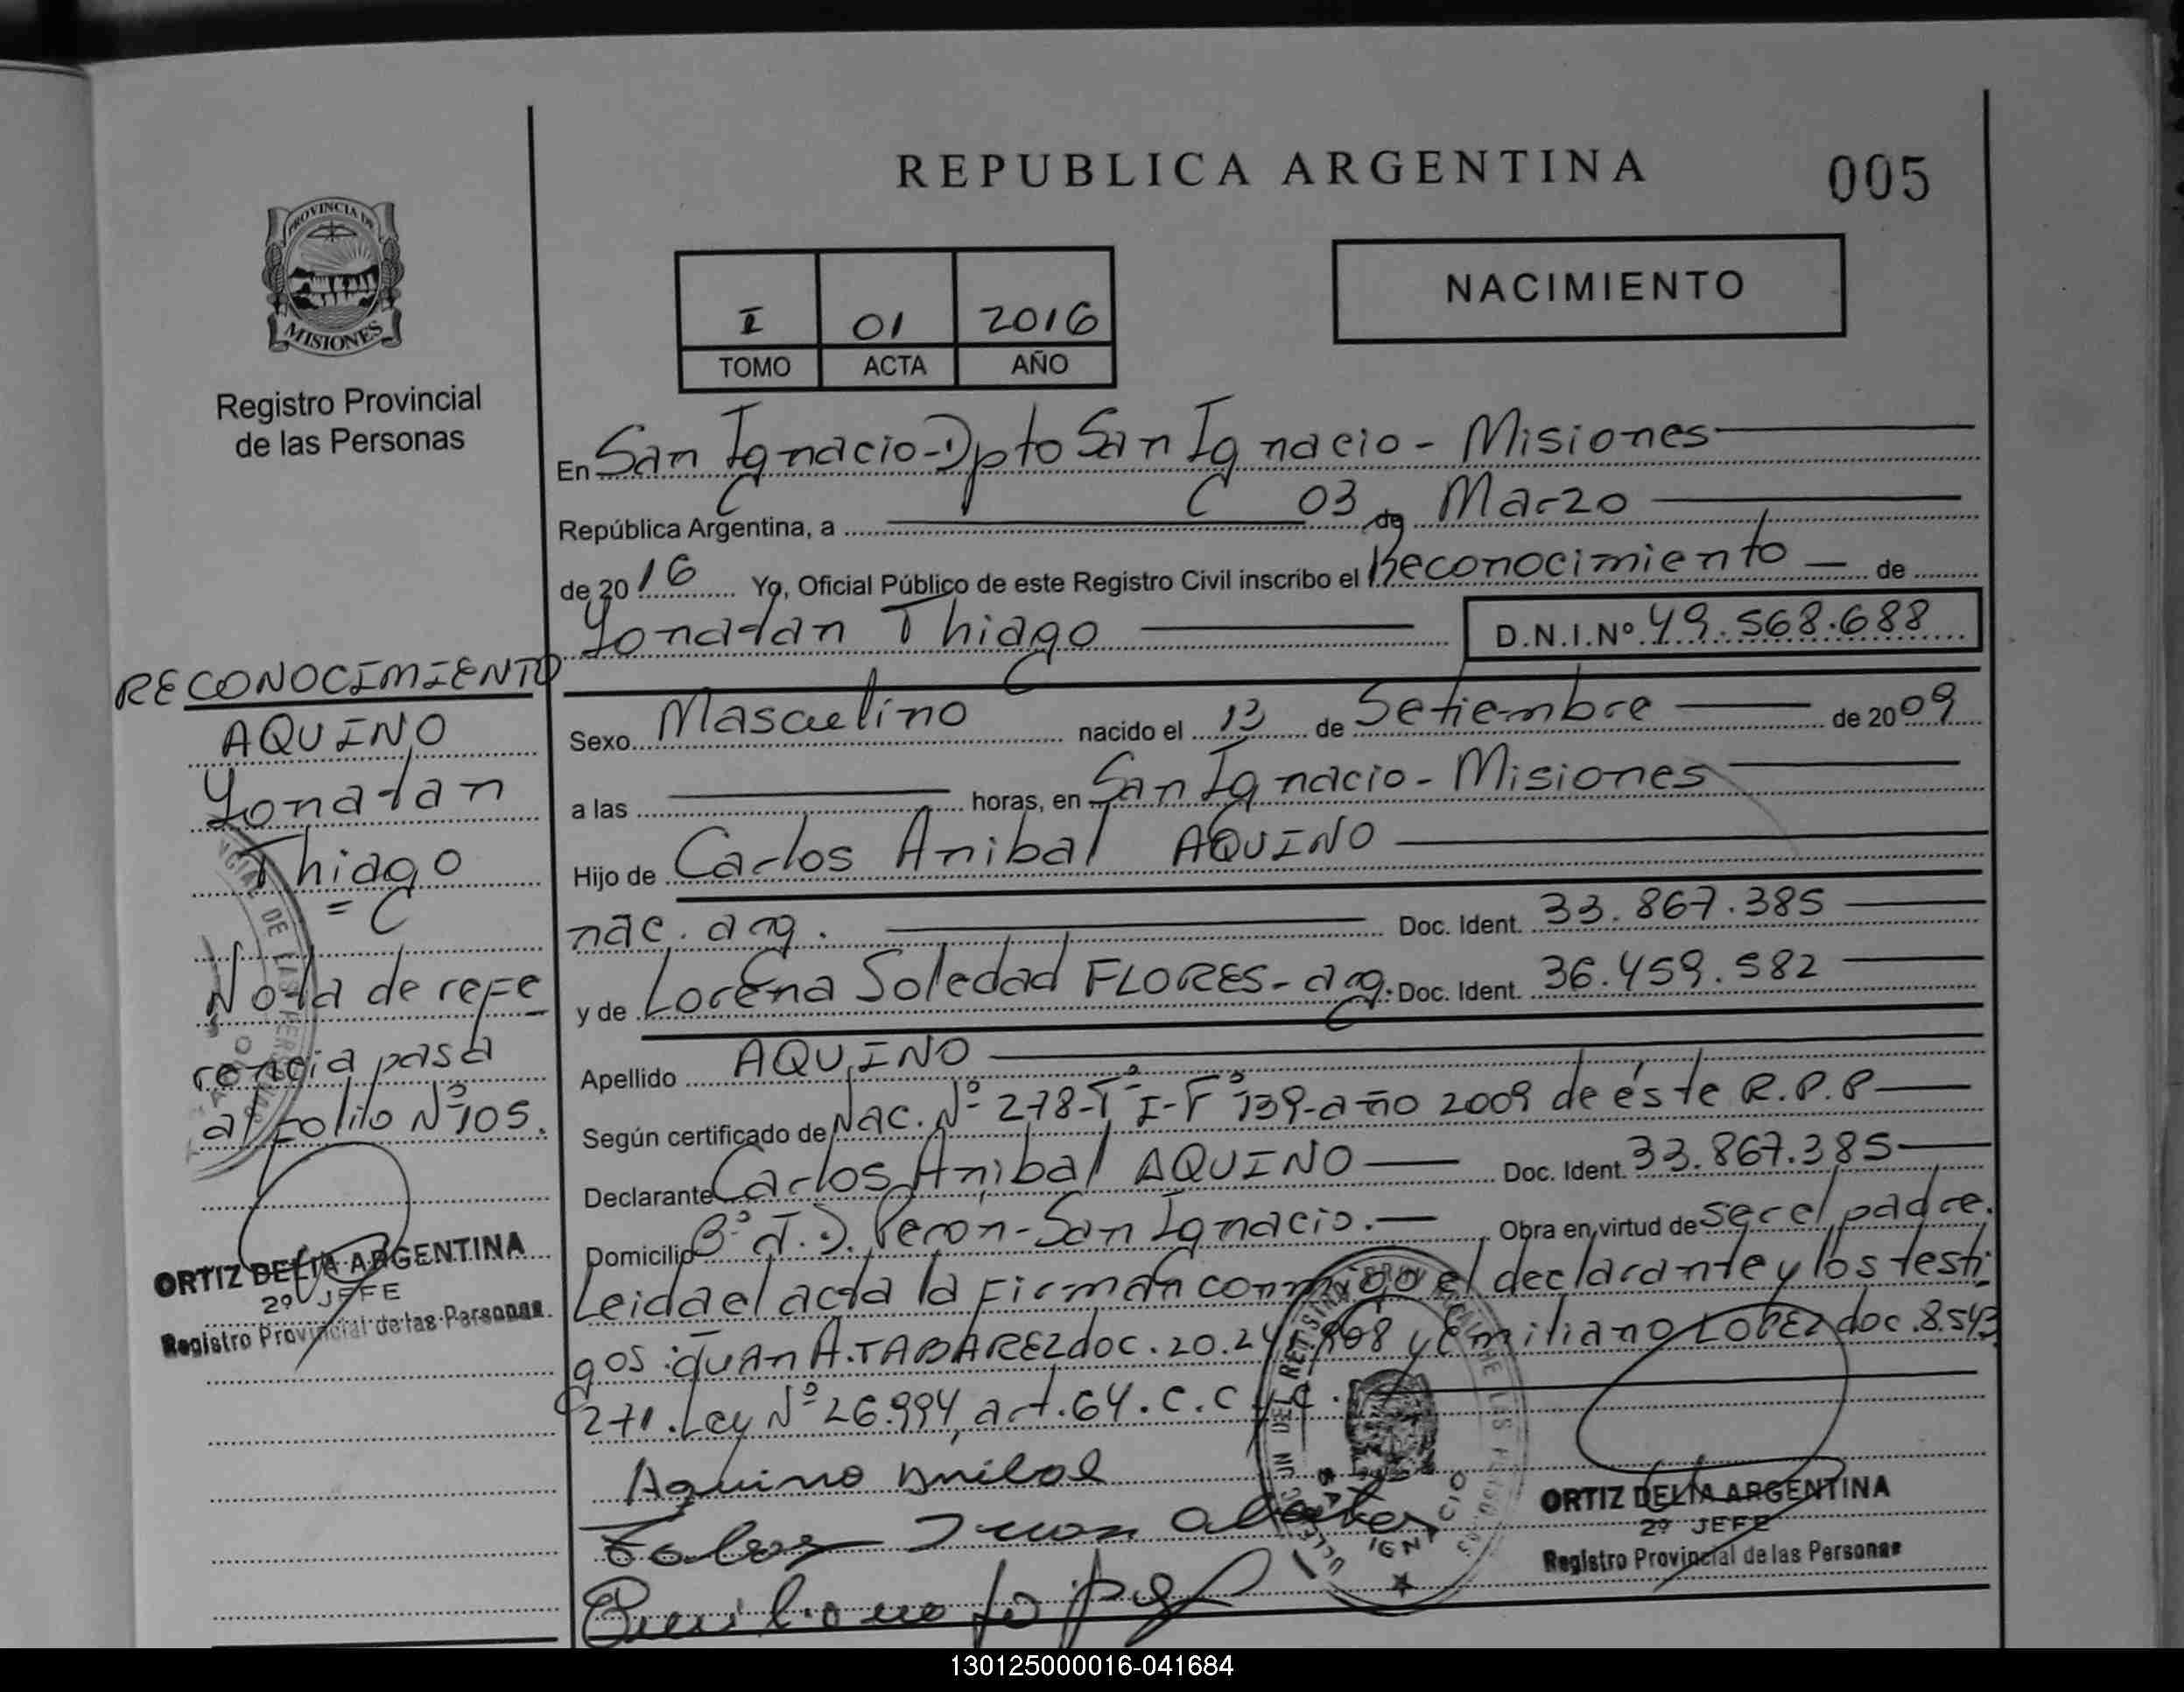 REPUBLICA ARGENTINA
005
PROVINCIA DE
MISIONES
Registro Provincial
de las Personas
I 01 2016
TOMO ACTA AÑO
NACIMIENTO
En San Ignacio-Dpto San Ignacio - Misiones
República Argentina, a 03 de Marzo
de 2016 Yo, Oficial Público de este Registro Civil inscribo el Reconocimiento de
Yonatan Thiago D.N.I.Nº 49.568.688
Sexo Masculino nacido el 13 de Setiembre de 2009
a las horas, en San Ignacio - Misiones
Hijo de Carlos Anibal AQUINO
nac. arg. Doc. Ident. 33.867.385
y de Lorena Soledad FLORES- arg. Doc. Ident. 36.459.582
Apellido AQUINO
Según certificado de Nac. Nº 278-Tº I-Fº 139-año 2009 de éste R.P.P
Declarante Carlos Anibal AQUINO Doc. Ident. 33.867.385
Domicilio Bº J.D. Peron-San Ignacio. Obra en virtud de ser el padre.
Leida el acta la firman conmigo el declarante y los testi
gos: JUAN A. TABAREZ doc. 20.24 908 y Emiliano LOPEZ doc. 8.543
271. Ley Nº 26.994, art. 64. C.C y C.
Aquino Anibal
Juan
Emiliano Lopez
ORTIZ DELIA ARGENTINA
2º JEFE
Registro Provincial de las Personas
RECONOCIMIENTO
AQUINO
Yonatan
Thiago
Nota de refe
rencia pasa
al folio Nº 105.
ORTIZ DELIA ARGENTINA
2º JEFE
Registro Provincial de las Personas
130125000016-041684